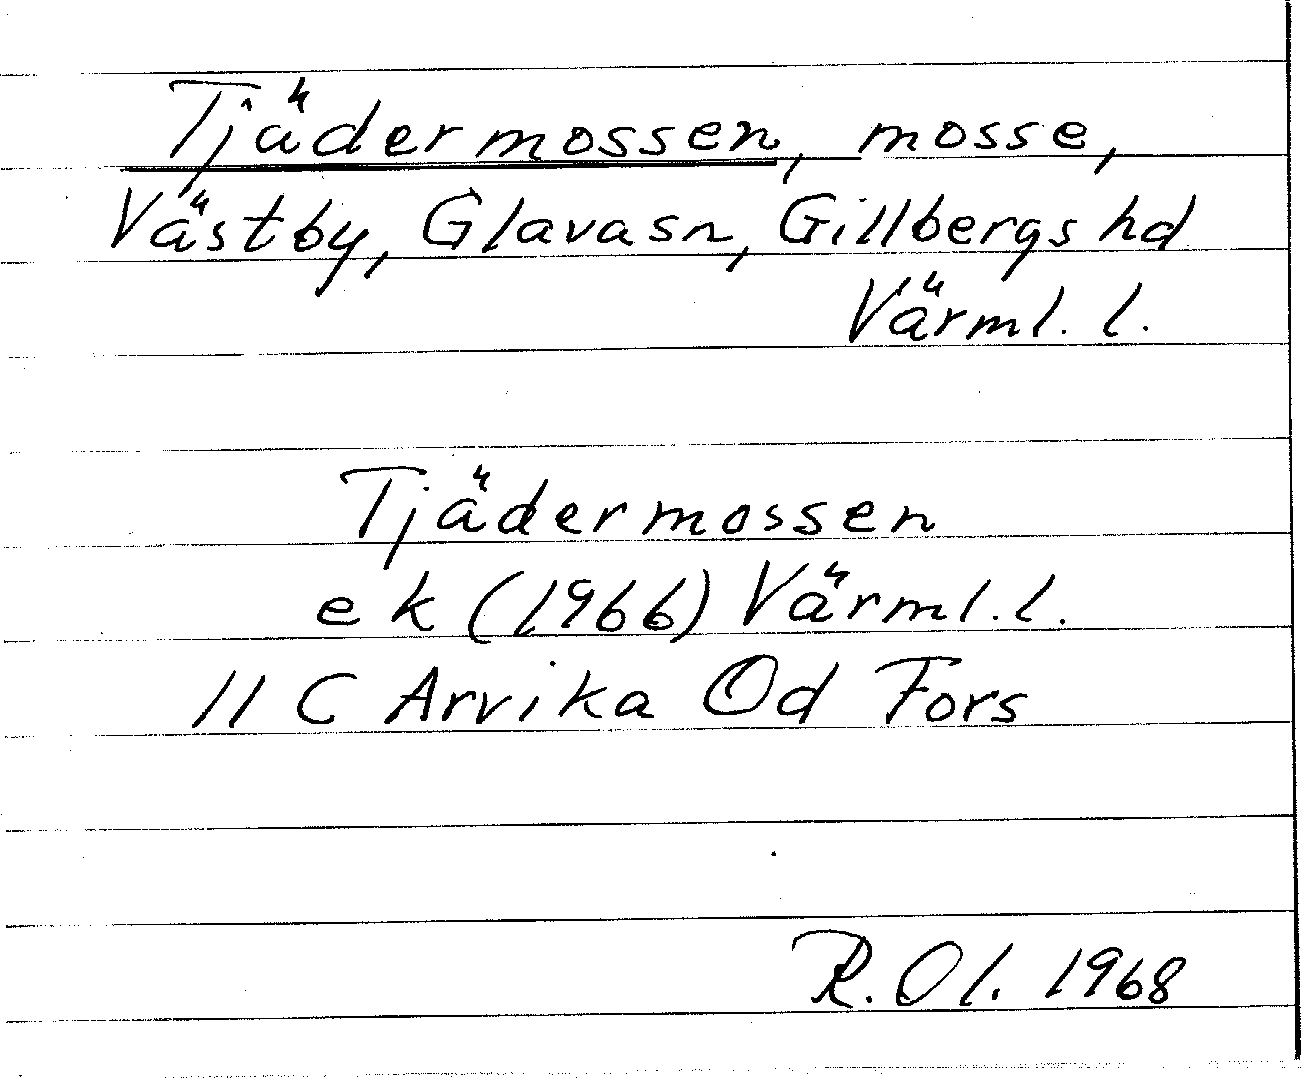 Tjädermossen, mosse,
Västby, Glavasn, Gillbergs hd
Värml. l.
Tjädermossen
ek (1966) Värml. l.
11 C Arvika Od Fors
R. Ol. 1968